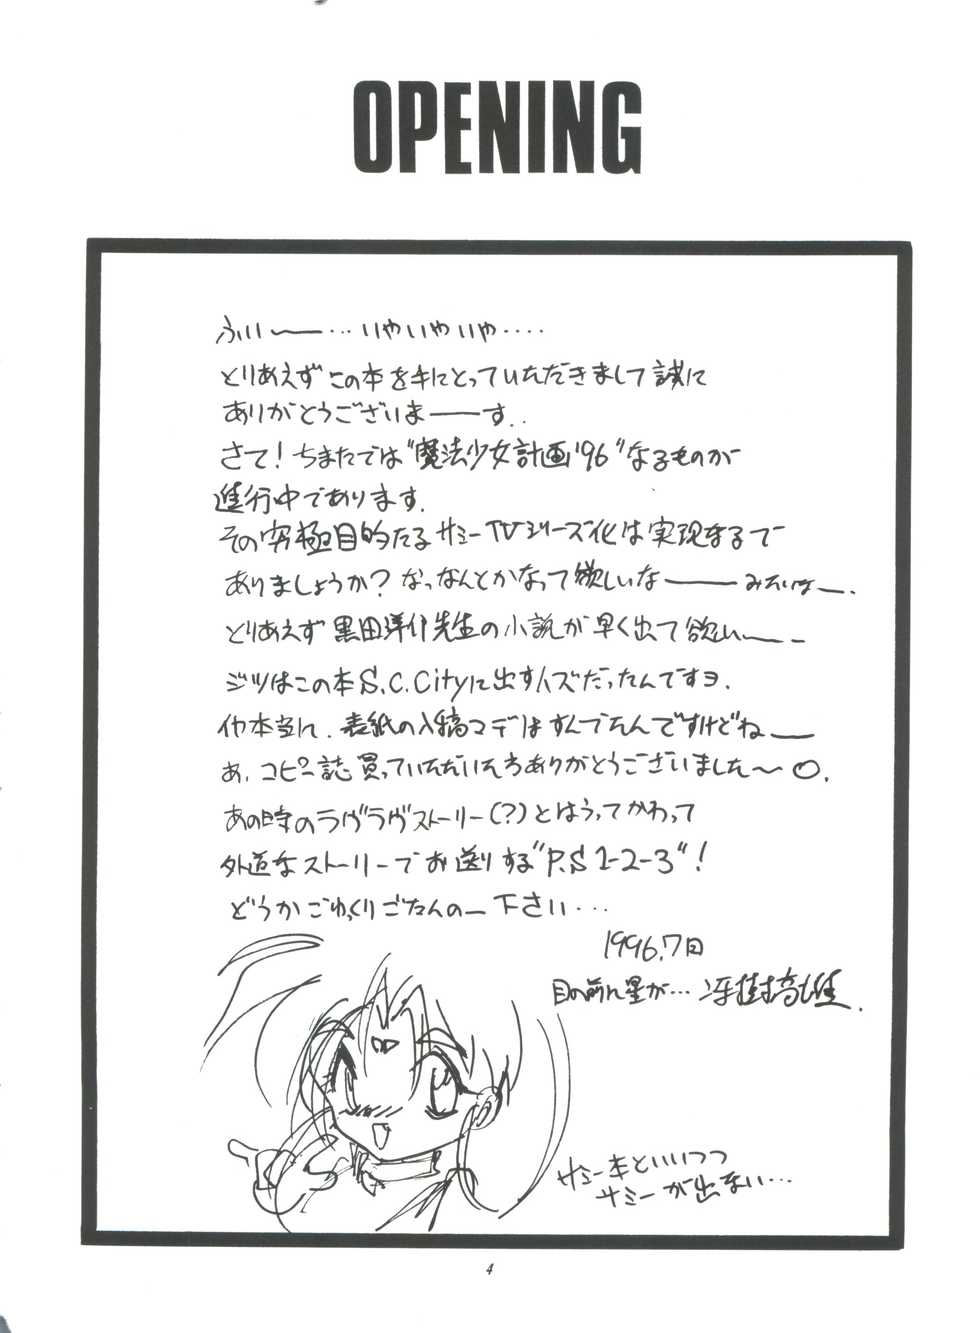 OPENING
ふい〜ー…いやいやいや‥‥
とりあえずこの本を手にとっていただきまして誠に
ありがとうございまーーす‥
さて！ちまたでは"魔法少女計画'96"なるものが
進行中であります.
その究極目的たるサミーTVシリーズ化は実現するで
ありましょうか？なっなんとかなって欲しいなーーーみたいなー.
とりあえず黒田洋介先生の小説が早く出て欲しいーー
ジツはこの本S.C.Cityに出すハズだったんですヨ.
イヤ本当に.表紙の入稿マデはすんでたんですけどねー
あ.コピー誌買っていただいた方ありがとうございました〜〇.
あの時のラヴラヴストーリー(？)とはうってかわって
外道なストーリーでお送りする"P.S 1-2-3"！
どうかごゆっくりごたんのー下さい…
1996.7月
目の前に星が…冴樹高雄.
サミー本といいつつ
サミーが出ない…
4